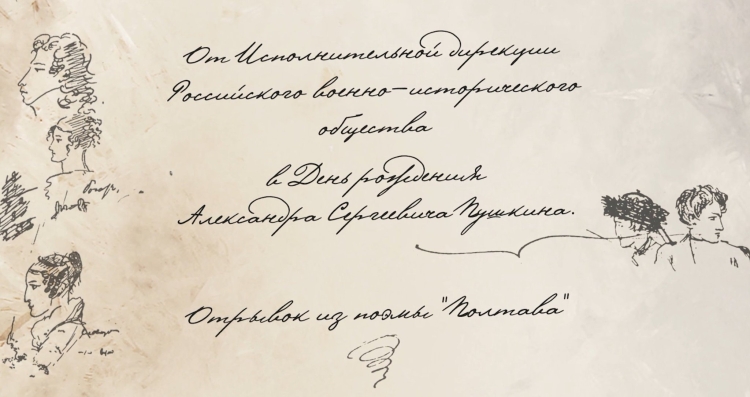 От Исполнительной дирекции
Российского военно-исторического
общества
в День рождения
Александра Сергеевича Пушкина.
Отрывок из поэмы "Полтава"